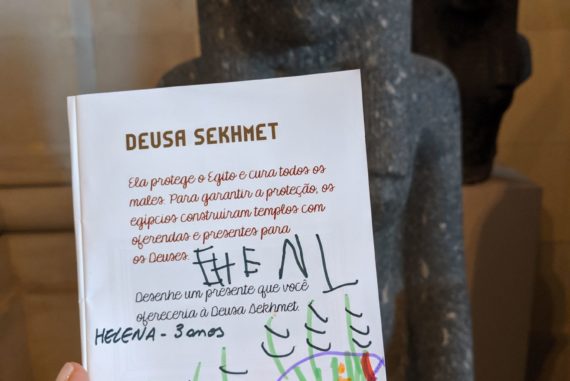 DEUSA SEKHMET
Ela protege o Egito e cura todos os
males. Para garantir a proteção, os
egípcios construíram templos com
oferendas e presentes para
os Deuses.
Desenhe um presente que você
ofereceria à Deusa Sekhmet.
HELENA - 3 anos